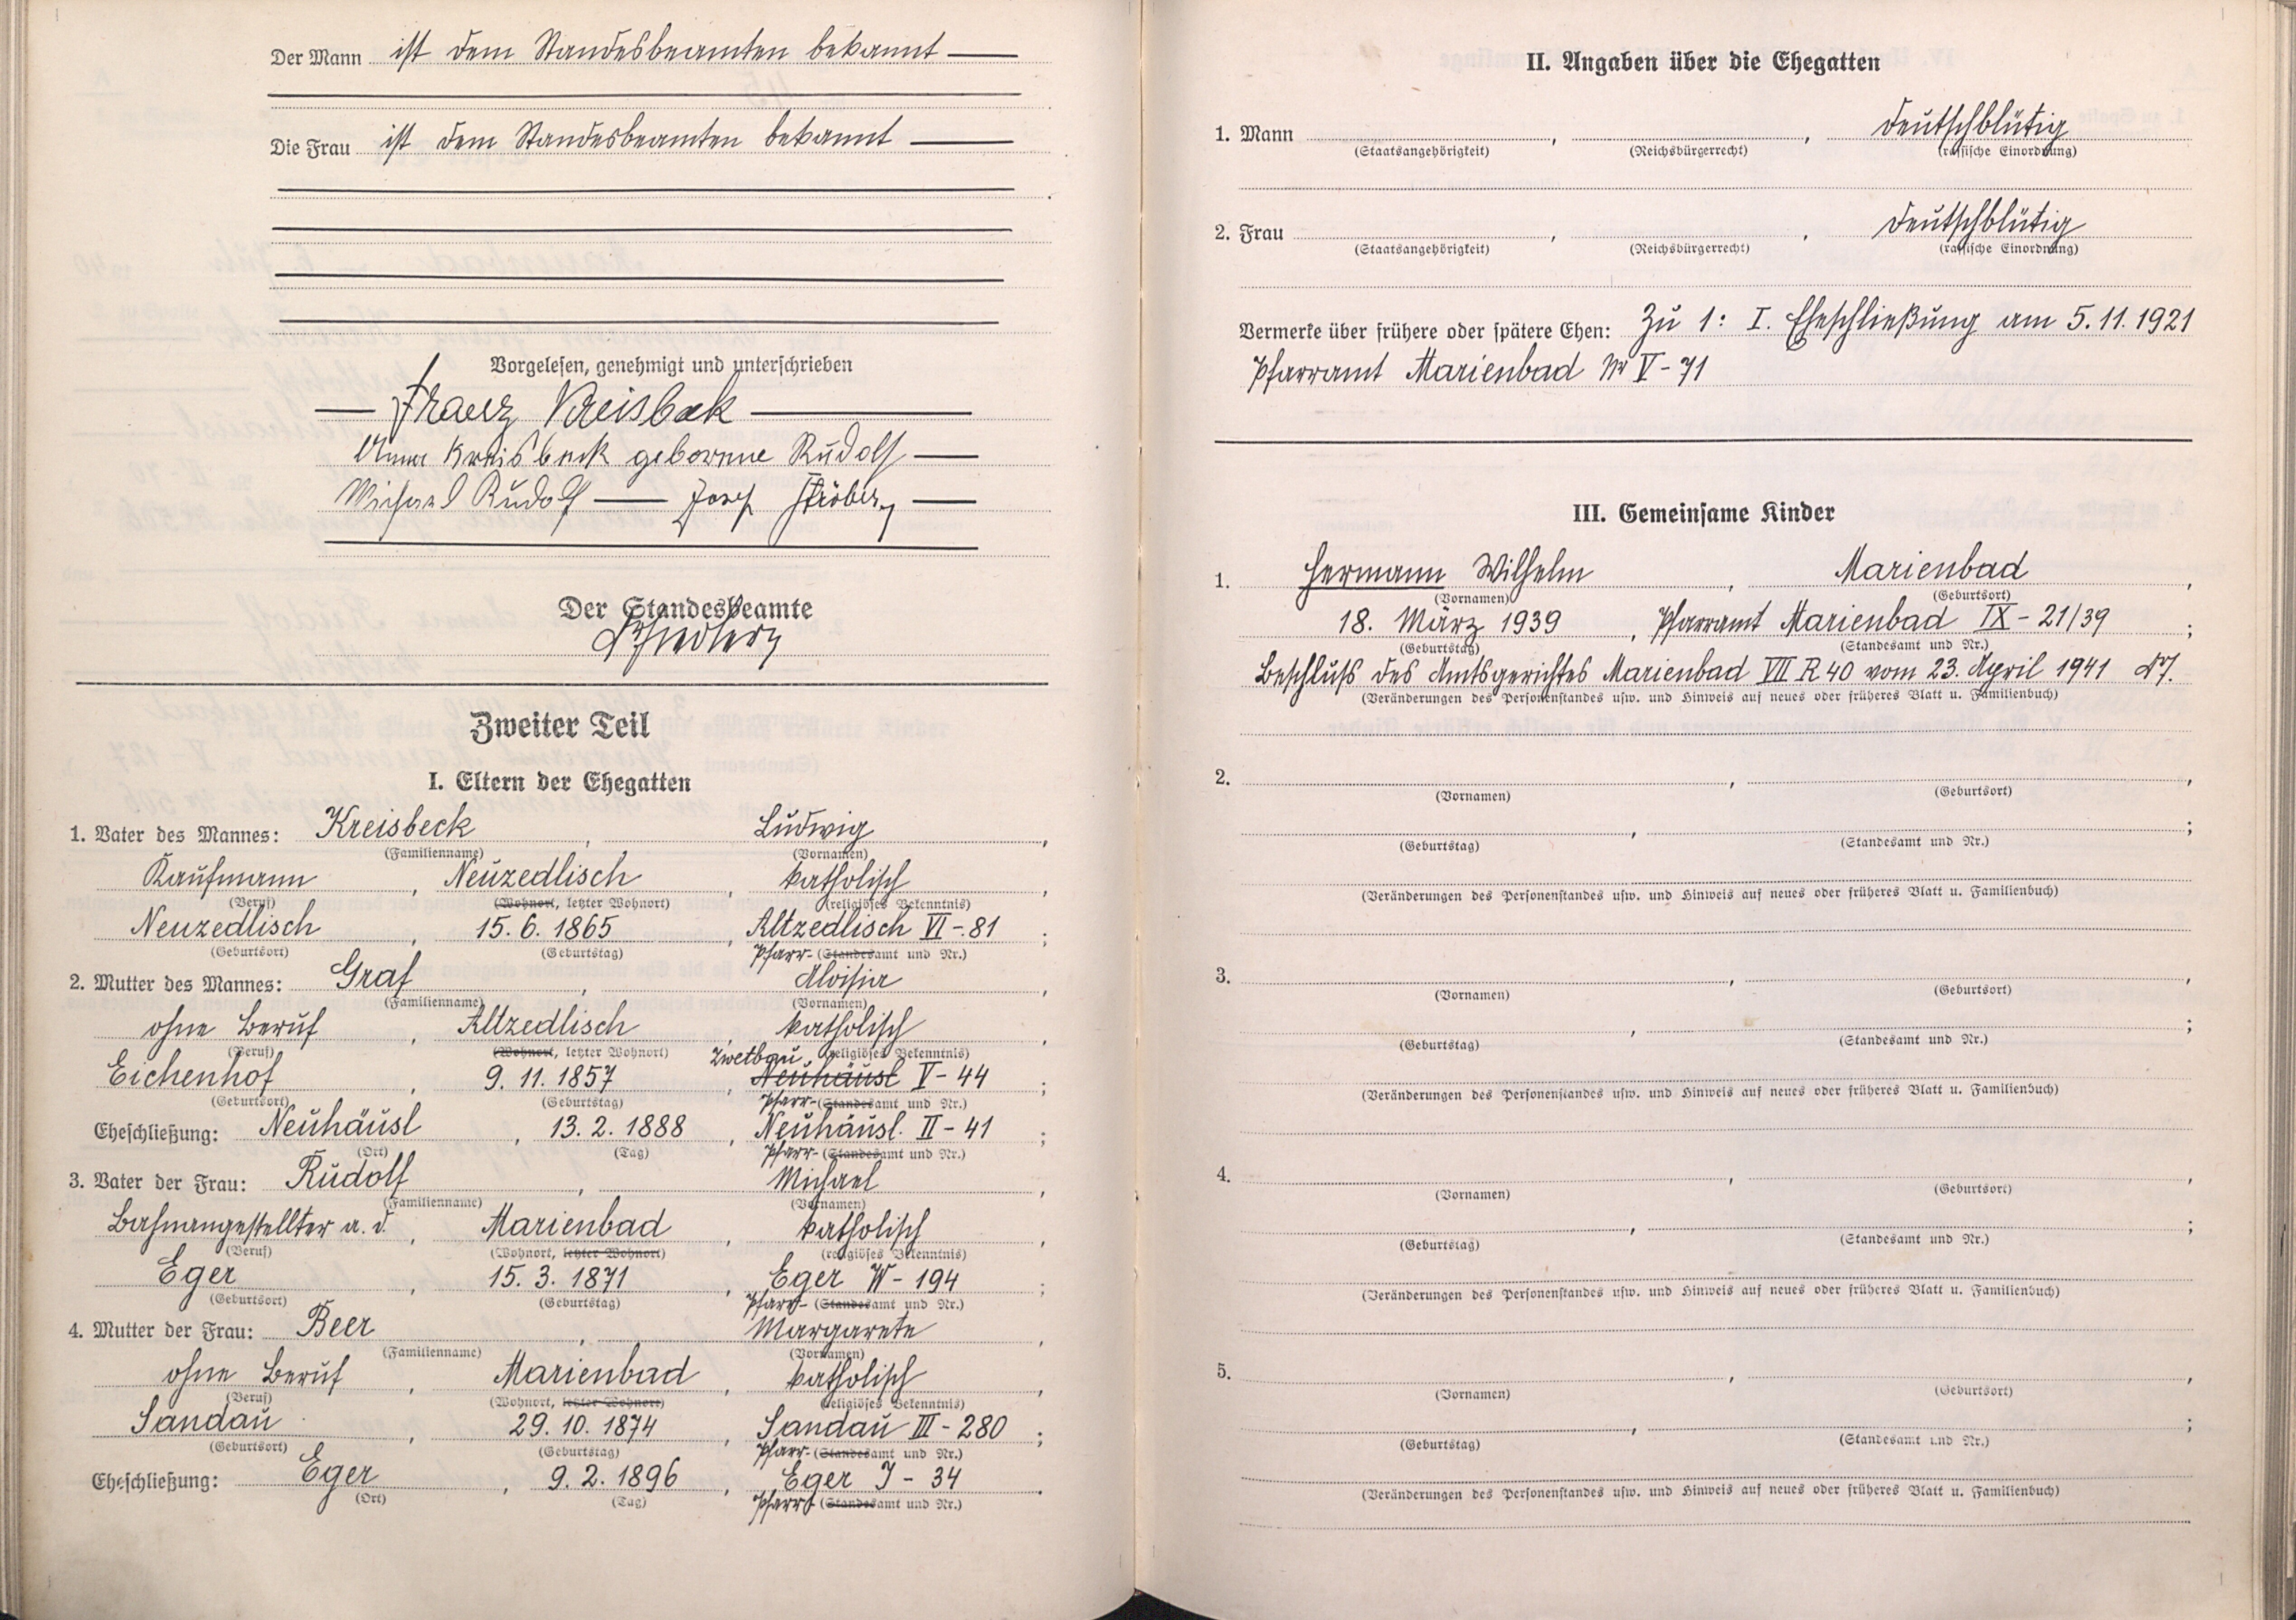 Der Mann ist dem Standesbeamten bekannt
Die Frau ist dem Standesbeamten bekannt
Vorgelesen, genehmigt und unterschrieben
Franz Kreisbeck
Anna Kreisbeck geborene Rudolf
Michael Rudolf — Josef
Der Standesbeamte
Zweiter Teil
I. Eltern der Ehegatten
1. Vater des Mannes: Kreisbeck, Ludwig,
(Familienname) (Vornamen)
Kaufmann, Neuzedlisch, katholisch,
(Beruf) (Wohnort, letzter Wohnort) (religiöses Bekenntnis)
Neuzedlisch, 15. 6. 1865, Altzedlisch VI-81;
(Geburtsort) (Geburtstag) Pfarr- (Standesamt und Nr.)
2. Mutter des Mannes: Graf, Aloisia,
(Familienname) (Vornamen)
ohne Beruf, Altzedlisch, katholisch,
(Beruf) (Wohnort, letzter Wohnort) Zwetbau (religiöses Bekenntnis)
Eichenhof, 9. 11. 1857, Neuhäusl V-44;
(Geburtsort) (Geburtstag) Pfarr- (Standesamt und Nr.)
Eheschließung: Neuhäusl, 13. 2. 1888, Neuhäusl II-41;
(Ort) (Tag) Pfarr- (Standesamt und Nr.)
3. Vater der Frau: Rudolf, Michael,
(Familienname) (Vornamen)
Bahnangestellter a. d., Marienbad, katholisch,
(Beruf) (Wohnort, letzter Wohnort) (religiöses Bekenntnis)
Eger, 15. 3. 1871, Eger W-194;
(Geburtsort) (Geburtstag) Pfarr- (Standesamt und Nr.)
4. Mutter der Frau: Beer, Margarete,
(Familienname) (Vornamen)
ohne Beruf, Marienbad, katholisch,
(Beruf) (Wohnort, letzter Wohnort) (religiöses Bekenntnis)
Sandau, 29. 10. 1874, Sandau III-280;
(Geburtsort) (Geburtstag) Pfarr- (Standesamt und Nr.)
Eheschließung: Eger, 9. 2. 1896, Eger J-34.
(Ort) (Tag) Pfarr- (Standesamt und Nr.)
II. Angaben über die Ehegatten
1. Mann , , deutschblütig
(Staatsangehörigkeit) (Reichsbürgerrecht) (rassische Einordnung)
2. Frau , , deutschblütig
(Staatsangehörigkeit) (Reichsbürgerrecht) (rassische Einordnung)
Vermerke über frühere oder spätere Ehen: Zu 1: I. Eheschließung am 5. 11. 1921
Pfarramt Marienbad Nr V-71
III. Gemeinsame Kinder
1. Hermann Wilhelm, Marienbad,
(Vornamen) (Geburtsort)
18. März 1939, Pfarramt Marienbad IX-21/39;
(Geburtstag) (Standesamt und Nr.)
Beschluß des Amtsgerichtes Marienbad VII R 40 vom 23. April 1941
(Veränderungen des Personenstandes usw. und Hinweis auf neues oder früheres Blatt u. Familienbuch)
2. , ,
(Vornamen) (Geburtsort)
, ;
(Geburtstag) (Standesamt und Nr.)
(Veränderungen des Personenstandes usw. und Hinweis auf neues oder früheres Blatt u. Familienbuch)
3. , ,
(Vornamen) (Geburtsort)
, ;
(Geburtstag) (Standesamt und Nr.)
(Veränderungen des Personenstandes usw. und Hinweis auf neues oder früheres Blatt u. Familienbuch)
4. , ,
(Vornamen) (Geburtsort)
, ;
(Geburtstag) (Standesamt und Nr.)
(Veränderungen des Personenstandes usw. und Hinweis auf neues oder früheres Blatt u. Familienbuch)
5. , ,
(Vornamen) (Geburtsort)
, ;
(Geburtstag) (Standesamt und Nr.)
(Veränderungen des Personenstandes usw. und Hinweis auf neues oder früheres Blatt u. Familienbuch)